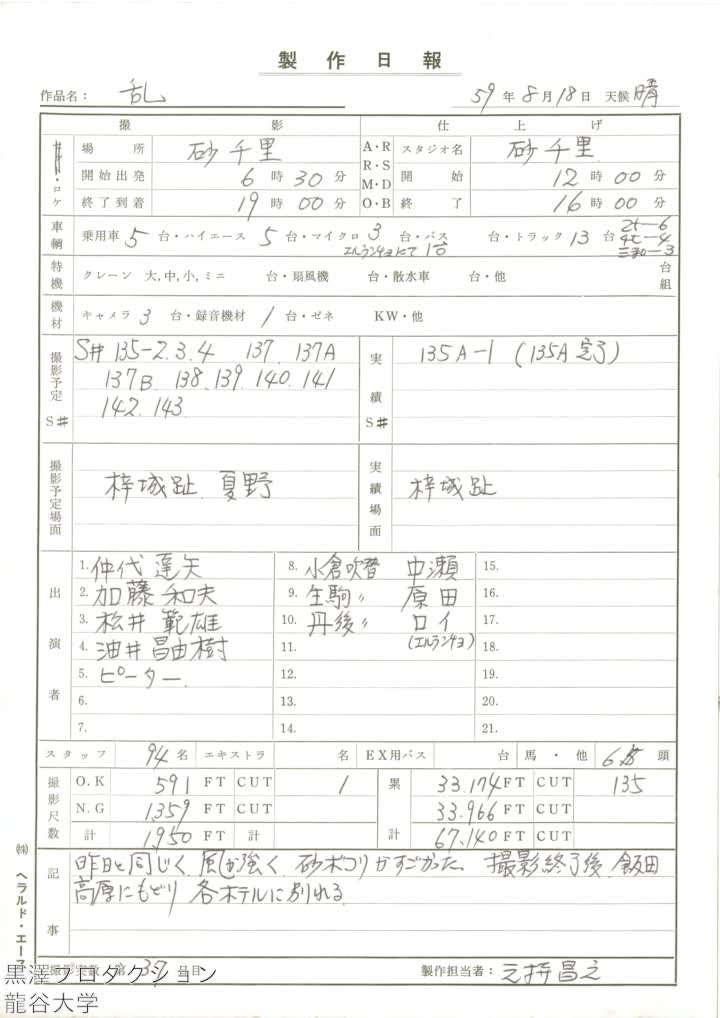 製作日報
作品名： 乱 59年8月18日 天候 晴
撮影 仕上げ
・ロケ 場所 砂千里 A・R スタジオ名 砂千里
開始出発 6時30分 R・S M・D 開始 12時00分
終了到着 19時00分 O・B 終了 16時00分
車輌 乗用車 5 台・ハイエース 5 台・マイクロ 3 台・バス 台・トラック 13 台 2t-6 4t-4 三和-3
エルランチョにて1台
特機 クレーン 大,中,小,ミニ 台・扇風機 台・散水車 台・他 台組
機材 キャメラ 3 台・録音機材 1 台・ゼネ KW・他
撮影予定 S# S# 135-2.3.4 137. 137A 実績 S# 135A-1 (135A 完了)
137B 138.139.140.141
142.143.
撮影予定場面 梓城趾. 夏野 実績場面 梓城趾
出演者 1. 仲代達矢 8. 小倉吹替 中瀬 15.
2. 加藤和夫 9. 生駒〃 原田 16.
3. 松井範雄 10. 丹後〃 ロイ 17.
4. 油井昌由樹 11. (エルランチョ) 18.
5. ピーター. 12. 19.
6. 13. 20.
7. 14. 21.
スタッフ 94名 エキストラ 名 EX用バス 台 馬・他 6 頭
撮影尺数 O.K 591 FT CUT 1 累計 33.174 FT CUT 135
N.G 1359 FT CUT 33.966 FT CUT
計 1950 FT 67.140 FT CUT
記事 昨日と同じく、風が強く、砂ボコリがすごかった。 撮影終了後、飯田
高原にもどり 各ホテルに別れる.
撮影実数 第 37 日目 製作担当者：之持昌之
㈱ ヘラルド・エース
黒澤プロダクション
龍谷大学